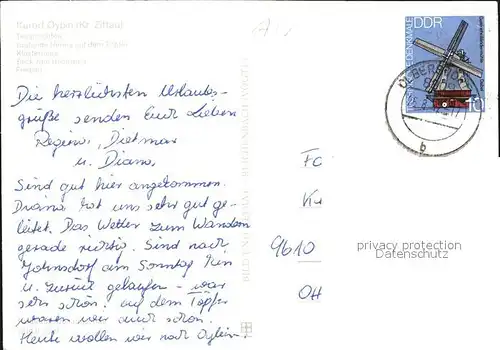 Kurort Oybin (Kr. Zittau)
Die herzlichsten Urlaubs-
grüße senden Euch Lieben
Regina, Dietmar
u. Diana.
Sind gut hier angekommen.
Diana hat uns sehr gut ge-
leitet. Das Wetter zum Wandern
gerade richtig. Sind nach
Johnsdorf am Sonntag hin
u. zurück gelaufen - war
sehr schön. Auf dem Töpfer
waren wir auch schon.
Heute wollen wir nach Oybin.
BILD UND HEIMAT REICHENBACH
DDR
10
OLBERSDORF
b
9610
privacy protection
Datenschutz